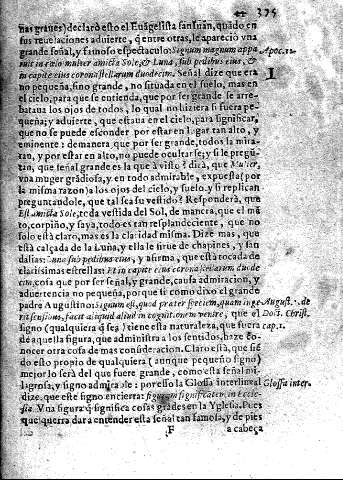 375
nas graues) declarò esto el Euãgelista san Iuan, quãdo en
sus reuelaciones aduierte, q̃ entre otras, le apareciò vna
grande señal, y famoso espectaculo: Signum magnum appa
ruit in cœlo mulier amicta Sole, & Luna, sub pedibus eius, &
in capite eius corona stellarum duodecim. Señal dize que era
no pequeña, sino grande, no situada en el suelo, mas en
el cielo, para que se entienda, que por ser grande se arre-
bataua los ojos de todos, lo qual no hiziera si fuera pe-
queña; y aduierte, que estaua en el cielo, para significar,
que no se puede esconder por estar en lugar tan alto, y
eminente: demanera que por ser grande, todos la mira-
ran, y por estar en alto, no puede ocultarse; y si le pregũ-
tan, que señal grande es la que à visto? dirà, que Mulier,
vna muger grãdiosa, y en todo admirable, expuesta (por
la misma razon) a los ojos del cielo, y suelo. y si replican
preguntandole, que tal sea su vestido? Responderà, que
Est amicta Sole, toda vestida del Sol, de manera, que el mã
to, corpiño, y saya, todo es tan resplandeciente, que no
solo està claro, mas es la claridad misma. Dize mas, que
està calçada de la Luna, y ella le sirue de chapines, y san
dalias: Luna sub pedibus eius, y afirma, que està tocada de
clarissimas estrellas: Et in capite eius corona stellarum duode
cim, cosa que por ser señal, y grande, causa admiracion, y
aduertencia no pequeña, porque si como dixo el grande
padre Agustino: Signum est, quod præter speciem, quam inge-
rit sensibus, facit aliquid aliud in cognitionem venire, que el
signo (qualquiera q̃ sea) tiene esta naturaleza, que fuera
de aquella figura, que administra a los sentidos, haze co-
nocer otra cosa de mas consideracion. Claro està, que siẽ
do esto propio de qualquiera (aunque pequeño signo)
mejor lo serà del que fuere grande, como esta señal mi-
lagrosa, y signo admirable: por esso la Glossa interlineal
dize, que este signo encierra: figuram significatem in eccle-
sia. Vna figura q̃ significa cosas grãdes en la Yglesia. Pues
que querra dar a entender esta señal tan famosa, y de pies
F
a cabeça
Apoc. 12.
I
August. 2. de
Doct. Christ.
cap. 1.
Glossa inter.